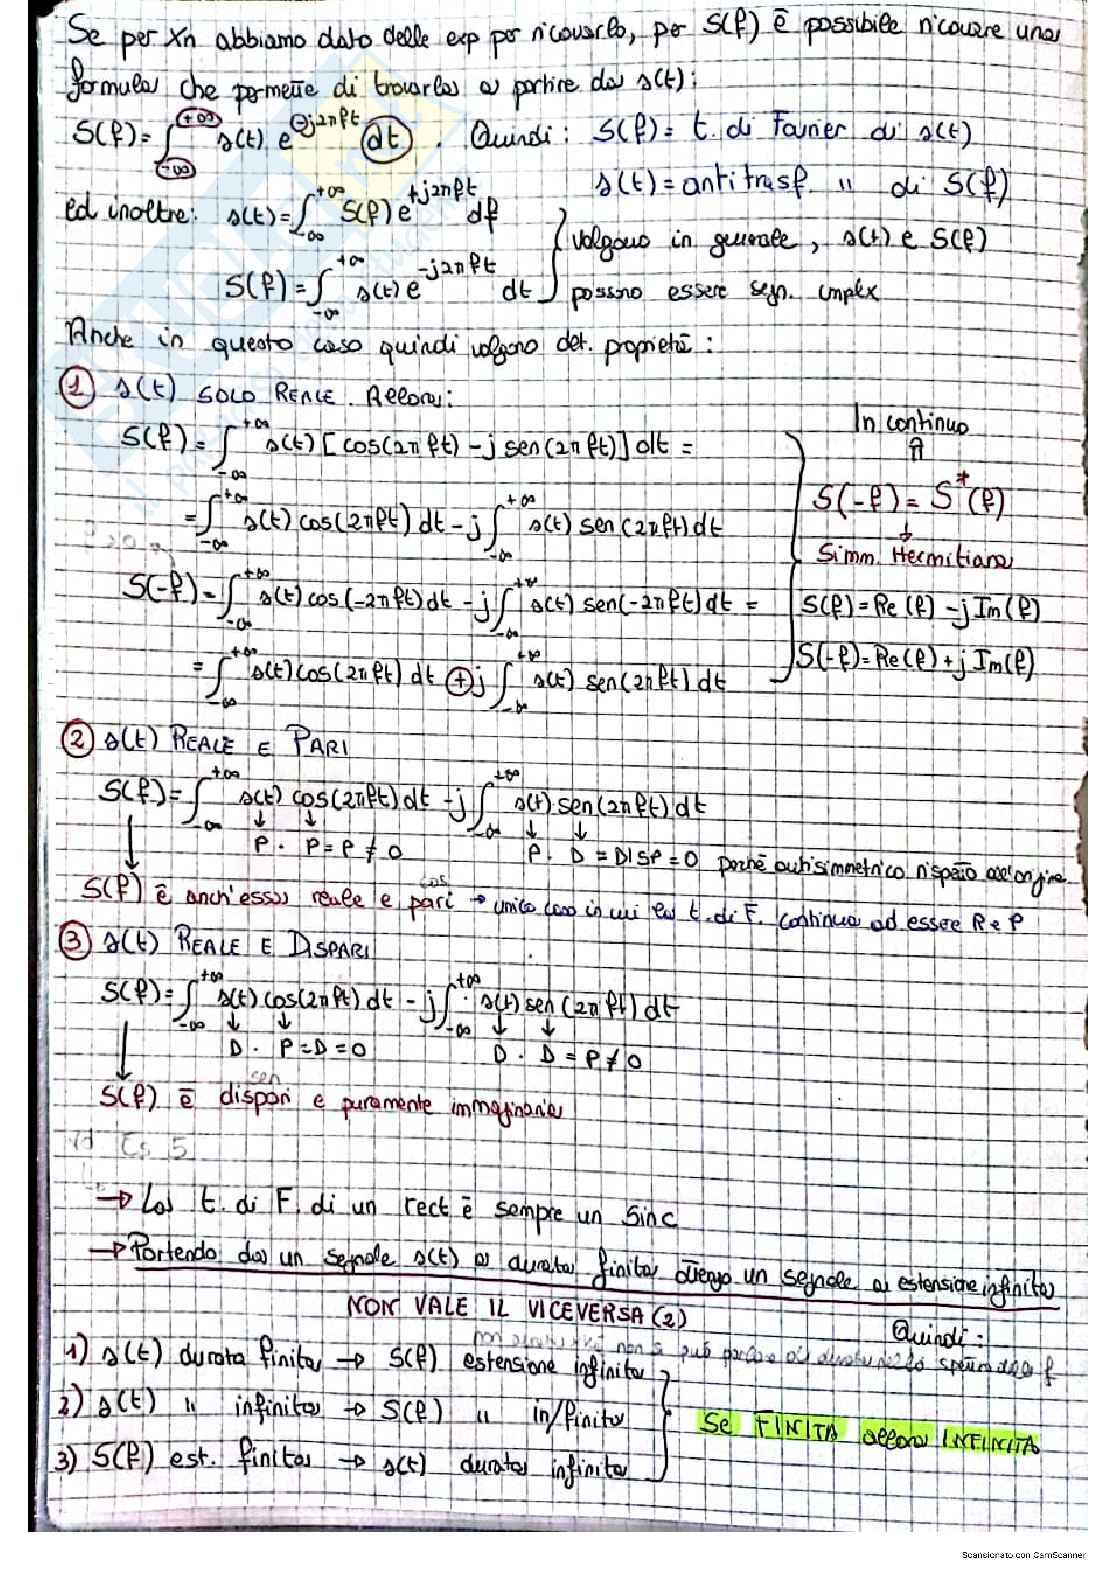 Se per Xn abbiamo dato delle exp per ricavarlo, per S(f) è possibile ricavare una
formula che permette di trovarla a partire da s(t):
S(f)=∫_{-∞}^{+∞} s(t) e^{-j2πft} dt. Quindi: S(f)= t. di Fourier di s(t)
s(t)= antitrasf. " di S(f)
Ed inoltre: s(t)=∫_{-∞}^{+∞} S(f) e^{+j2πft} df
Valgono in generale, s(t) e S(f)
S(f)=∫_{-∞}^{+∞} s(t) e^{-j2πft} dt possono essere segn. cmplx
Anche in questo caso quindi valgono det. proprietà:
① s(t) SOLO REALE. Allora:
In continuo
S(f)=∫_{-∞}^{+∞} s(t) [cos(2πft) -j sen(2πft)] dt =
S(-f) = S*(f)
=∫_{-∞}^{+∞} s(t) cos(2πft) dt -j∫_{-∞}^{+∞} s(t) sen(2πft) dt
Simm. Hermitiana
S(-f)=∫_{-∞}^{+∞} s(t) cos(-2πft) dt -j∫_{-∞}^{+∞} s(t) sen(-2πft) dt =
S(f)=Re(f) -j Im(f)
=∫_{-∞}^{+∞} s(t) cos(2πft) dt + j∫_{-∞}^{+∞} s(t) sen(2πft) dt
S(-f)=Re(f)+j Im(f)
② s(t) REALE E PARI
S(f)=∫_{-∞}^{+∞} s(t) cos(2πft) dt -j∫_{-∞}^{+∞} s(t) sen(2πft) dt
↓ ↓ ↓ ↓
P. P=P≠0 P. D=DISP=0 perché antisimmetrico rispetto all'origine
cos
S(f) è anch'essa reale e pari → unico caso in cui la t. di F. continua ad essere R e P
③ s(t) REALE E DISPARI
S(f)=∫_{-∞}^{+∞} s(t) cos(2πft) dt -j∫_{-∞}^{+∞} s(t) sen(2πft) dt
↓ ↓ ↓ ↓
D. P=D=0 D. D=P≠0
sen
S(f) è dispari e puramente immaginaria
vd Es 5
→ La t. di F. di un rect è sempre un Sinc
→ Partendo da un segnale s(t) a durata finita ottengo un segnale a estensione infinita
NON VALE IL VICEVERSA (2)
Quindi:
1) s(t) durata finita → S(f) estensione infinita
2) s(t) " infinita → S(f) " in/finita
Se FINITA allora INFINITA
3) S(f) est. finita → s(t) durata infinita
Scansionato con CamScanner